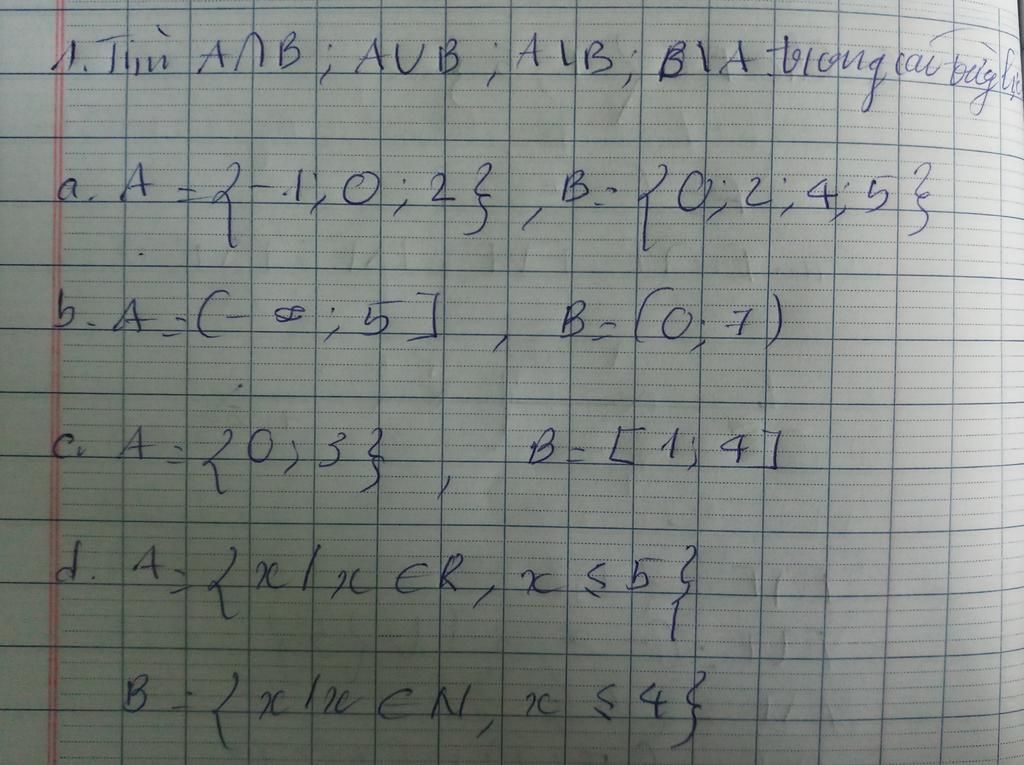 1. Tìm A∩B ; A∪B ; A\B ; B\A trong các
a. A = {-1; 0; 2} , B = {0; 2; 4; 5}
b. A = (-∞; 5] , B = (0; 7)
c. A = {0; 3} , B = [1; 4]
d. A = {x/x ∈ R, x ≤ 5}
B = {x/x ∈ N, x ≤ 4}